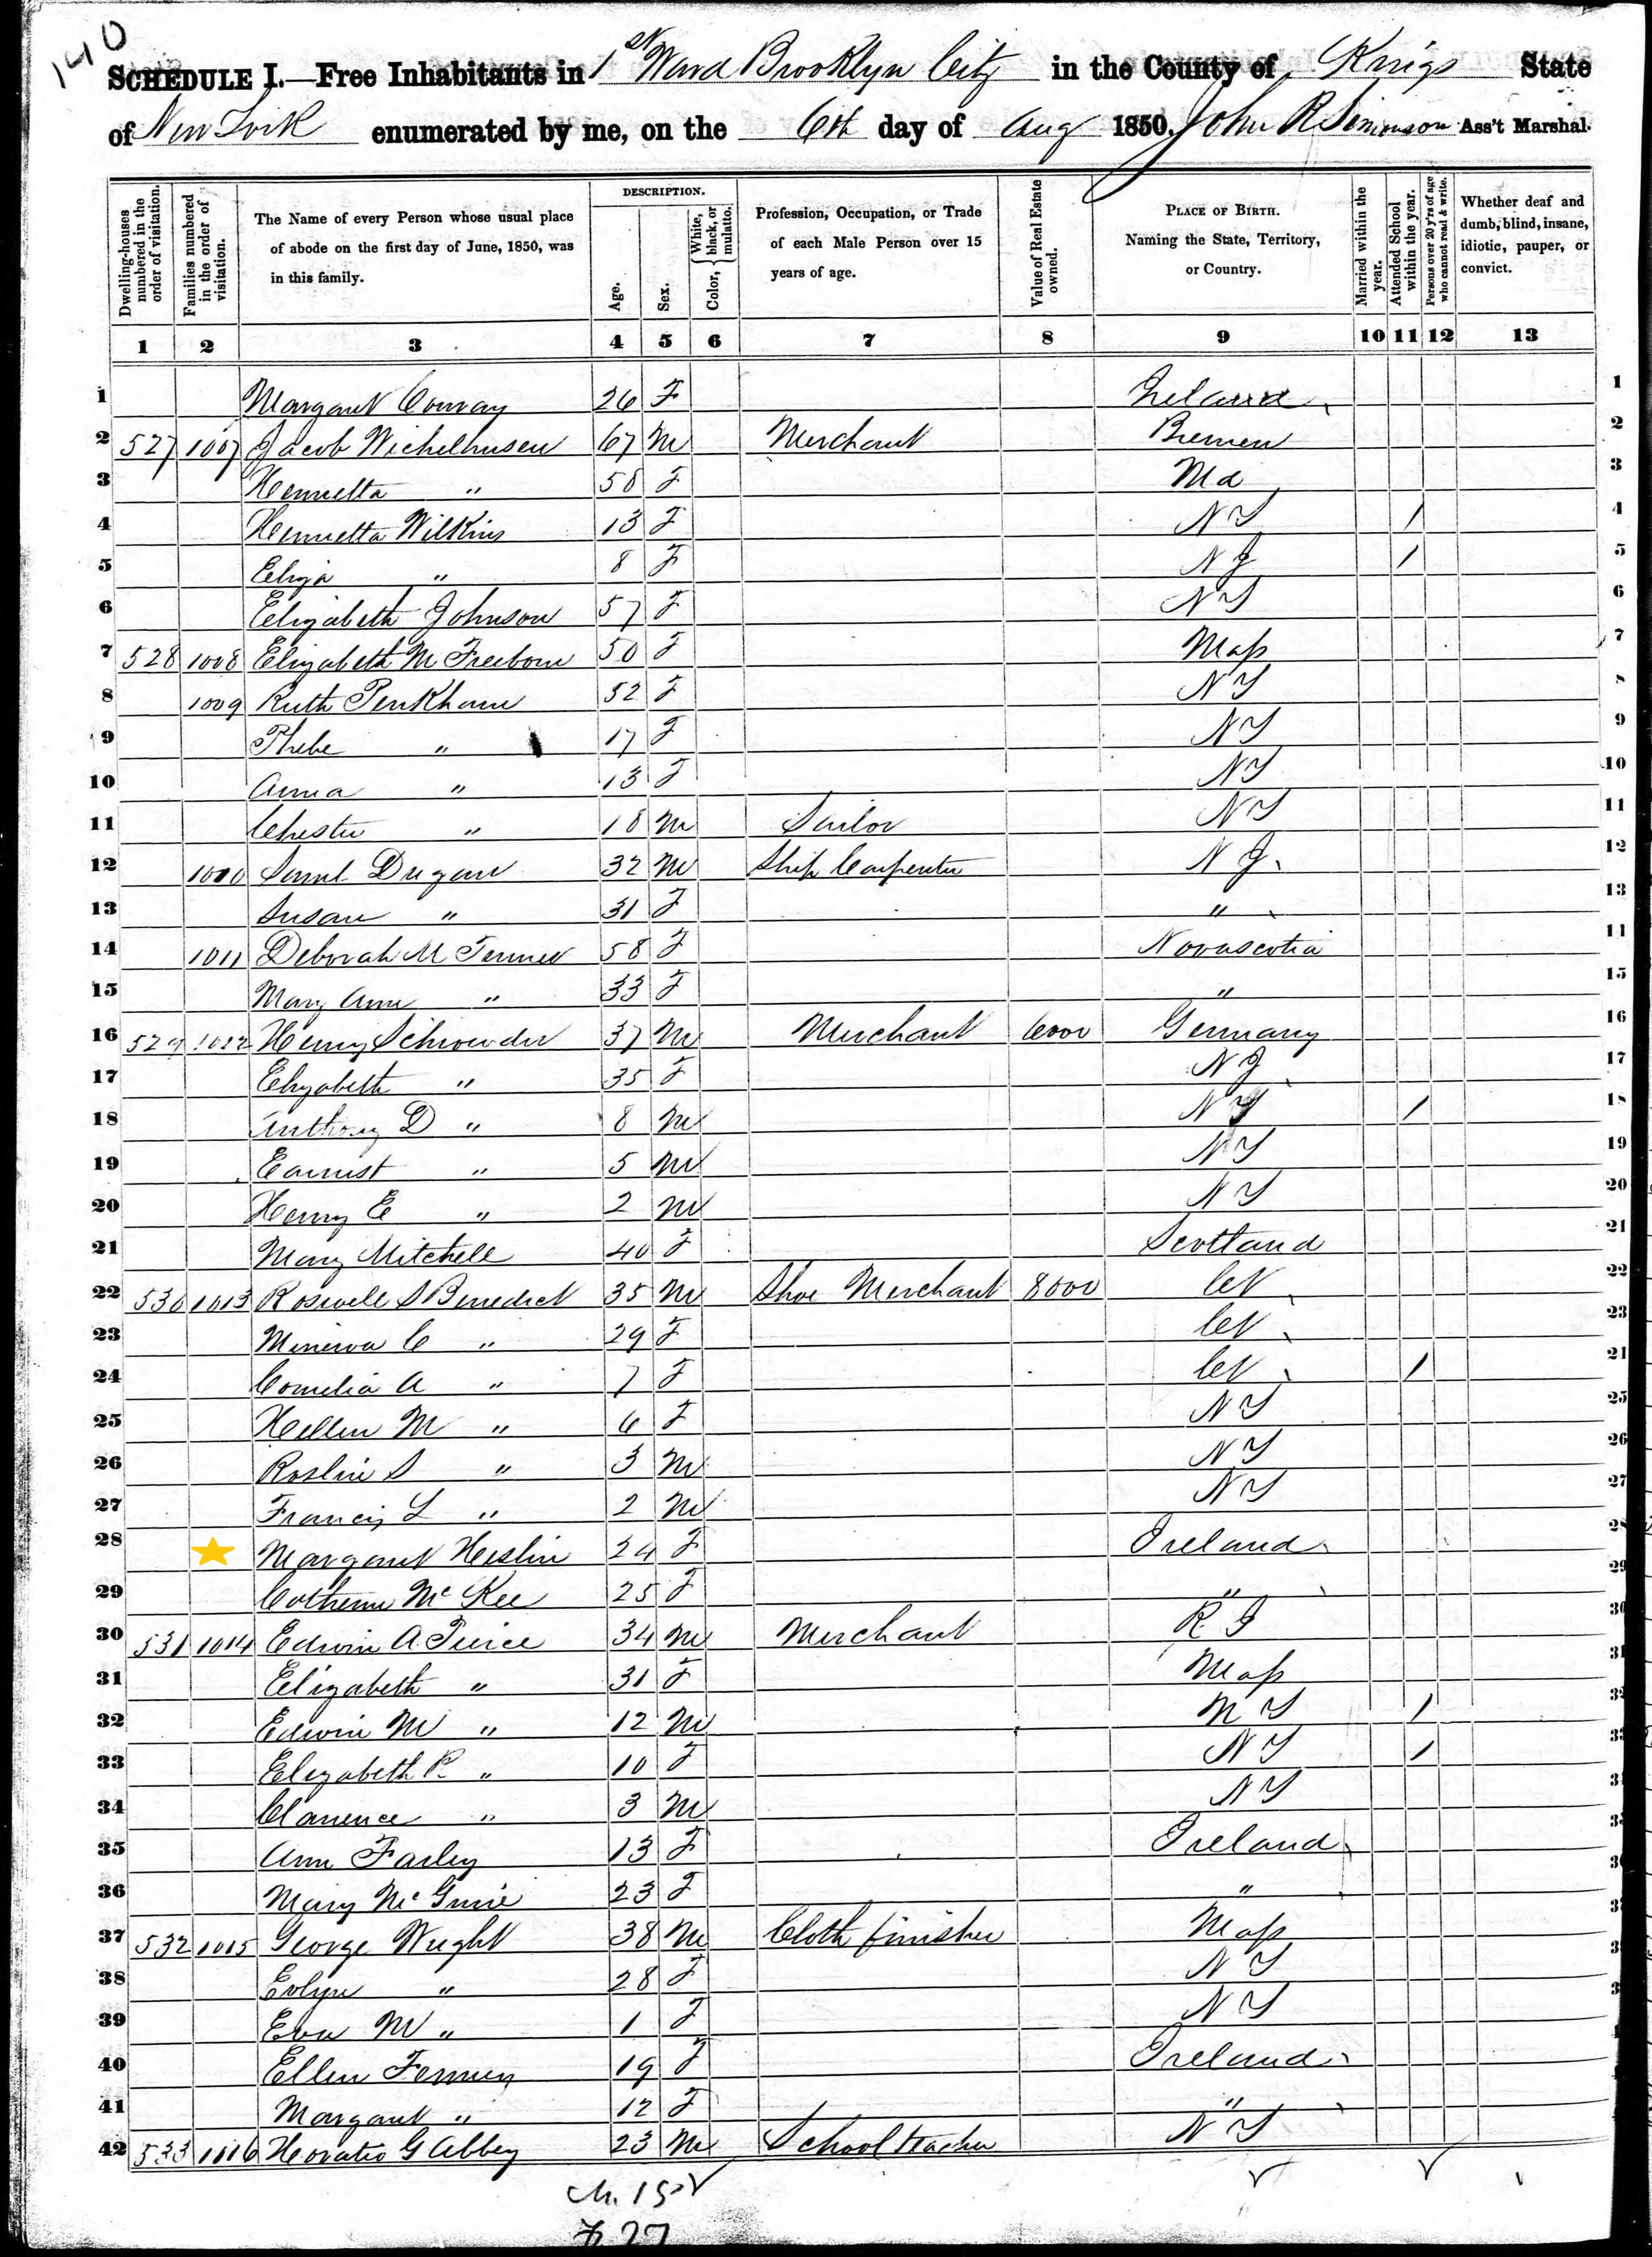 140
SCHEDULE I.—Free Inhabitants in 1st Ward Brooklyn City in the County of Kings State
of New York enumerated by me, on the 6th day of Aug 1850. John R Simonson Ass't Marshal.
Dwelling-houses numbered in the order of visitation.
Families numbered in the order of visitation.
The Name of every Person whose usual place of abode on the first day of June, 1850, was in this family.
DESCRIPTION.
Age.
Sex.
Color, { White, black, or mulatto.
Profession, Occupation, or Trade of each Male Person over 15 years of age.
Value of Real Estate owned.
PLACE OF BIRTH. Naming the State, Territory, or Country.
Married within the year.
Attended School within the year.
Persons over 20 y'rs of age who cannot read & write.
Whether deaf and dumb, blind, insane, idiotic, pauper, or convict.
1 2 3 4 5 6 7 8 9 10 11 12 13
1 Margaret Conray 26 F Ireland 1
2 527 1007 Jacob Wichelhusen 67 M Merchant Bremen 2
3 Henrietta " 58 F Md 3
4 Henrietta Wilkins 13 F NY / 4
5 Eliza " 8 F NJ / 5
6 Elizabeth Johnson 57 F NY 6
7 528 1008 Elizabeth M Freeborn 50 F Mass 7
8 1009 Ruth Penkham 52 F NY 8
9 Phebe " 17 F NY 9
10 Anna " 13 F NY 10
11 Chester " 18 M Sailor NY 11
12 1010 Saml Dugan 32 M Ship Carpenter NJ 12
13 Susan " 31 F " 13
14 1011 Deborah M Fenner 58 F Novascotia 11
15 Mary Ann " 33 F " 15
16 529 1012 Henry Schroeder 37 M Merchant 6000 Germany 16
17 Elizabeth " 35 F NJ 17
18 Anthony D " 8 M NY / 18
19 Earnest " 5 M NY 19
20 Henry E " 2 M NY 20
21 Mary Mitchell 40 F Scotland 21
22 530 1013 Roswell S Benedict 35 M Shoe Merchant 8000 Ct 22
23 Minerva C " 29 F Ct 23
24 Cornelia A " 7 F Ct / 21
25 Hellen M " 6 F NY 25
26 Roslin S " 3 M NY 26
27 Francis L " 2 M NY 27
28 Margaret Heslin 24 F Ireland 28
29 Catherine McKee 25 F " 29
30 531 1014 Edwin A Pierce 34 M Merchant R I 30
31 Elizabeth " 31 F Mass 31
32 Edwin M " 12 M NY /
33 Elizabeth P. " 10 F NY /
34 Clarence " 3 M NY
35 Ann Farley 13 F Ireland
36 Mary McGuire 23 F "
37 532 1015 George Wright 38 M Cloth finisher Mass
38 Evlyn " 28 F NY
39 Eva M " 1 F NY
40 Ellen Fenney 19 F Ireland
41 Margaret " 12 F "
42 533 1016 Horatio G Abbey 23 M School teacher NY
M. 15
F 27